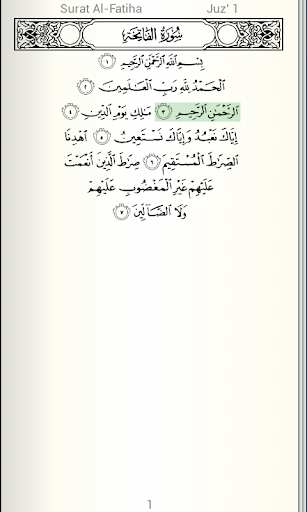 Surat Al-Fatiha Juz' 1
سُورَةُ الفَاتِحَةِ
بِسْمِ ٱللَّهِ ٱلرَّحْمَٰنِ ٱلرَّحِيمِ ١
ٱلْحَمْدُ لِلَّهِ رَبِّ ٱلْعَٰلَمِينَ ٢
ٱلرَّحْمَٰنِ ٱلرَّحِيمِ ٣ مَٰلِكِ يَوْمِ ٱلدِّينِ ٤
إِيَّاكَ نَعْبُدُ وَإِيَّاكَ نَسْتَعِينُ ٥ ٱهْدِنَا
ٱلصِّرَٰطَ ٱلْمُسْتَقِيمَ ٦ صِرَٰطَ ٱلَّذِينَ أَنْعَمْتَ
عَلَيْهِمْ غَيْرِ ٱلْمَغْضُوبِ عَلَيْهِمْ
وَلَا ٱلضَّآلِّينَ ٧
1